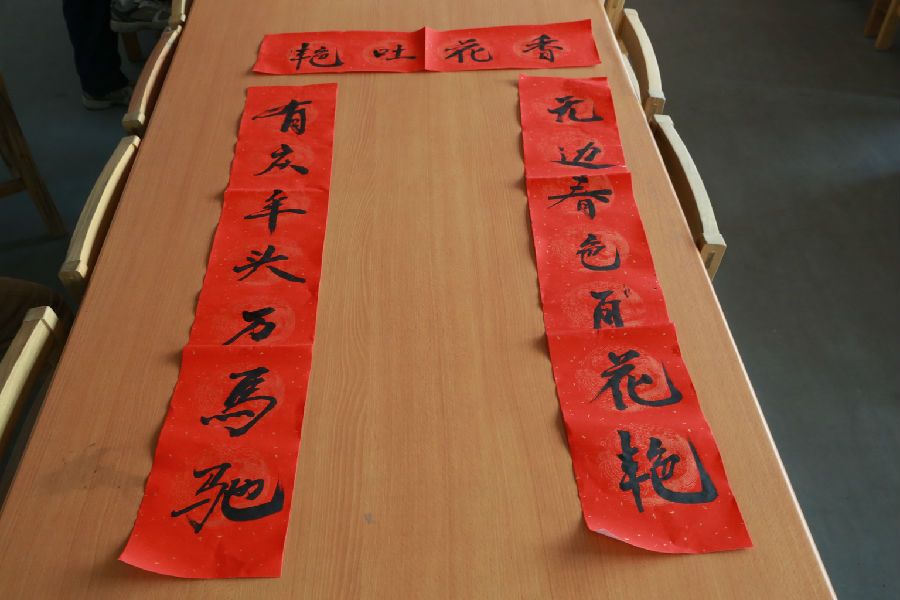 香花吐艳
无边春色百花艳
有庆年头万馬驰